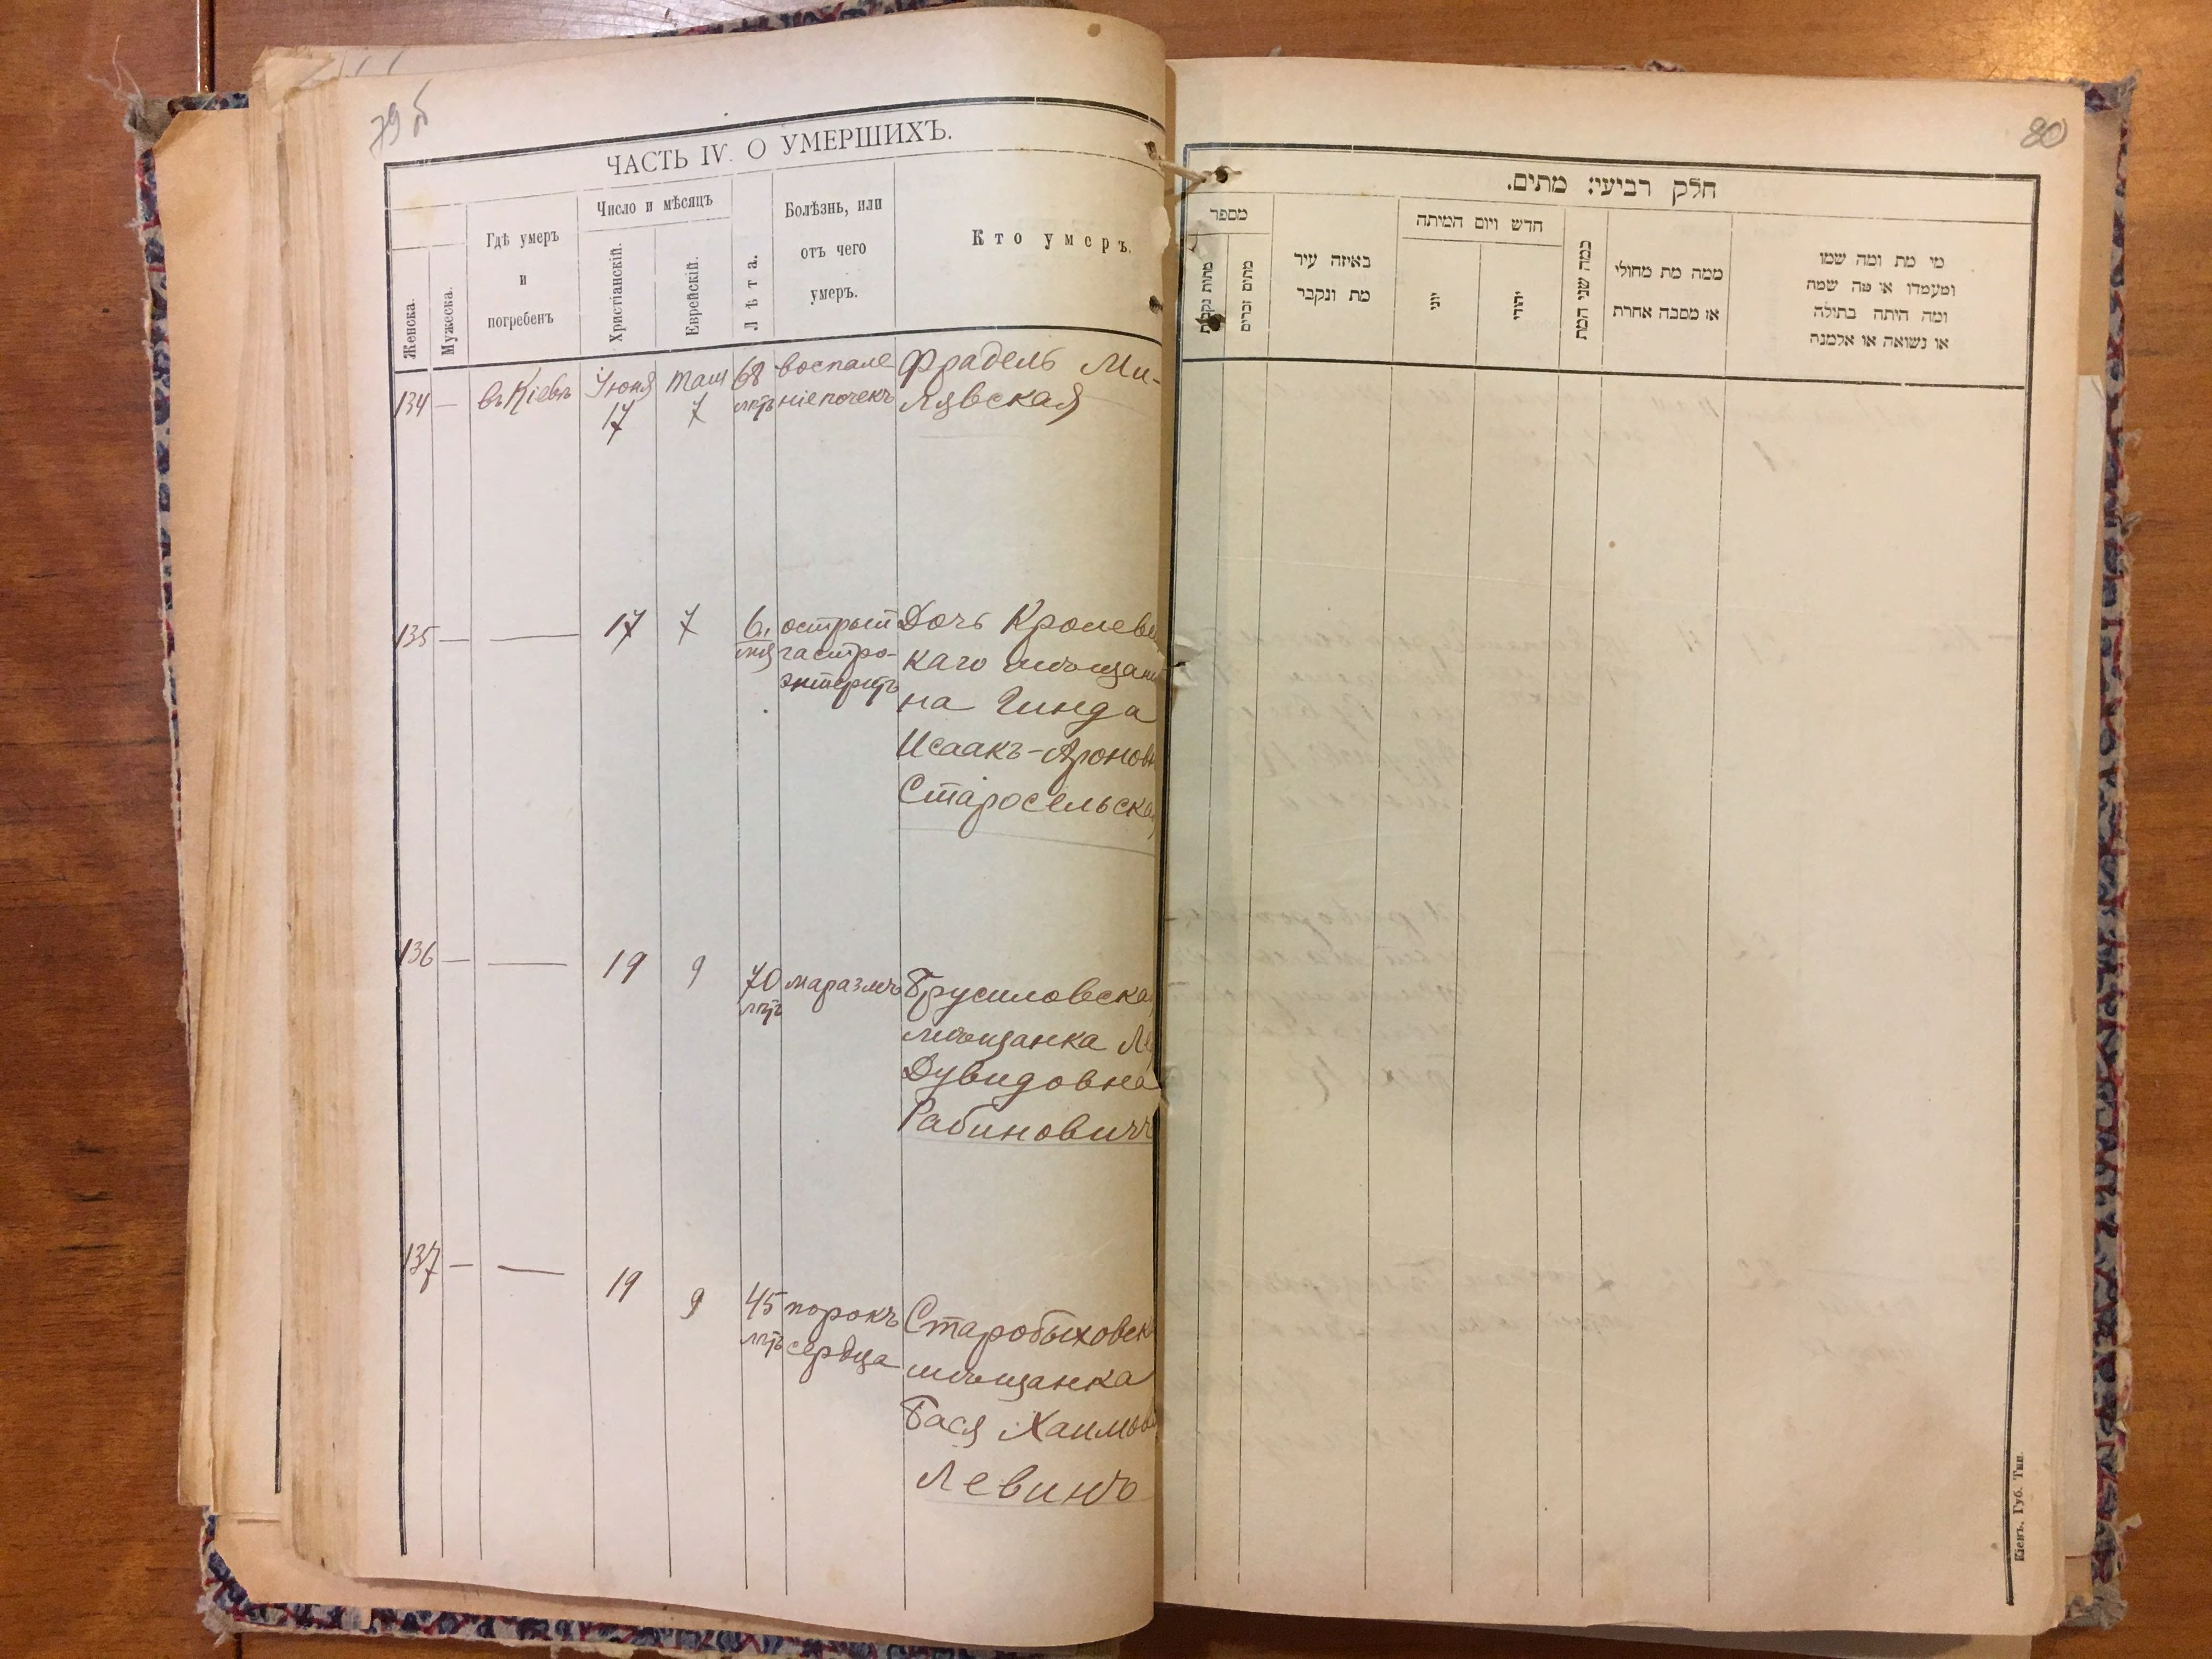 79 б
ЧАСТЬ IV. О УМЕРШИХЪ.
Женска.
Мужеска.
Гдѣ умеръ
и
погребенъ
Число и мѣсяцъ
Христіанскій.
Еврейскій.
Лѣта.
Болѣзнь, или
отъ чего
умеръ.
Кто умеръ.
134 — въ Кіевѣ Іюня 17 Тамм 7 68 лѣтъ
воспале-
ніе почекъ
Фрадель Ми-
лявская
135 — — 17 7
острый
гастро-
энтеритъ
Дочь Кролеве
каго мѣщани
на Гинда
Исаакъ-Аронов
Старосельска
136 — — 19 9 70 лѣтъ
маразмъ
Брусиловска
мѣщанка
Дувидовна
Рабинович
137 — — 19 9 45 лѣтъ
порокъ
сердца
Старобыховск
мѣщанка
Бася Хаимов
Левинъ
80
חלק רביעי: מתים.
מספר
מתות נקבות
מתים זכרים
באיזה עיר
מת ונקבר
חדש ויום המיתה
יוני
יהודי
כמה שני המת
ממה מת מחולי
או מסבה אחרת
מי מת ומה שמו
ומעמדו או מה שמה
ומה היתה בתולה
או נשואה או אלמנה
Кіевъ, Губ. Тип.